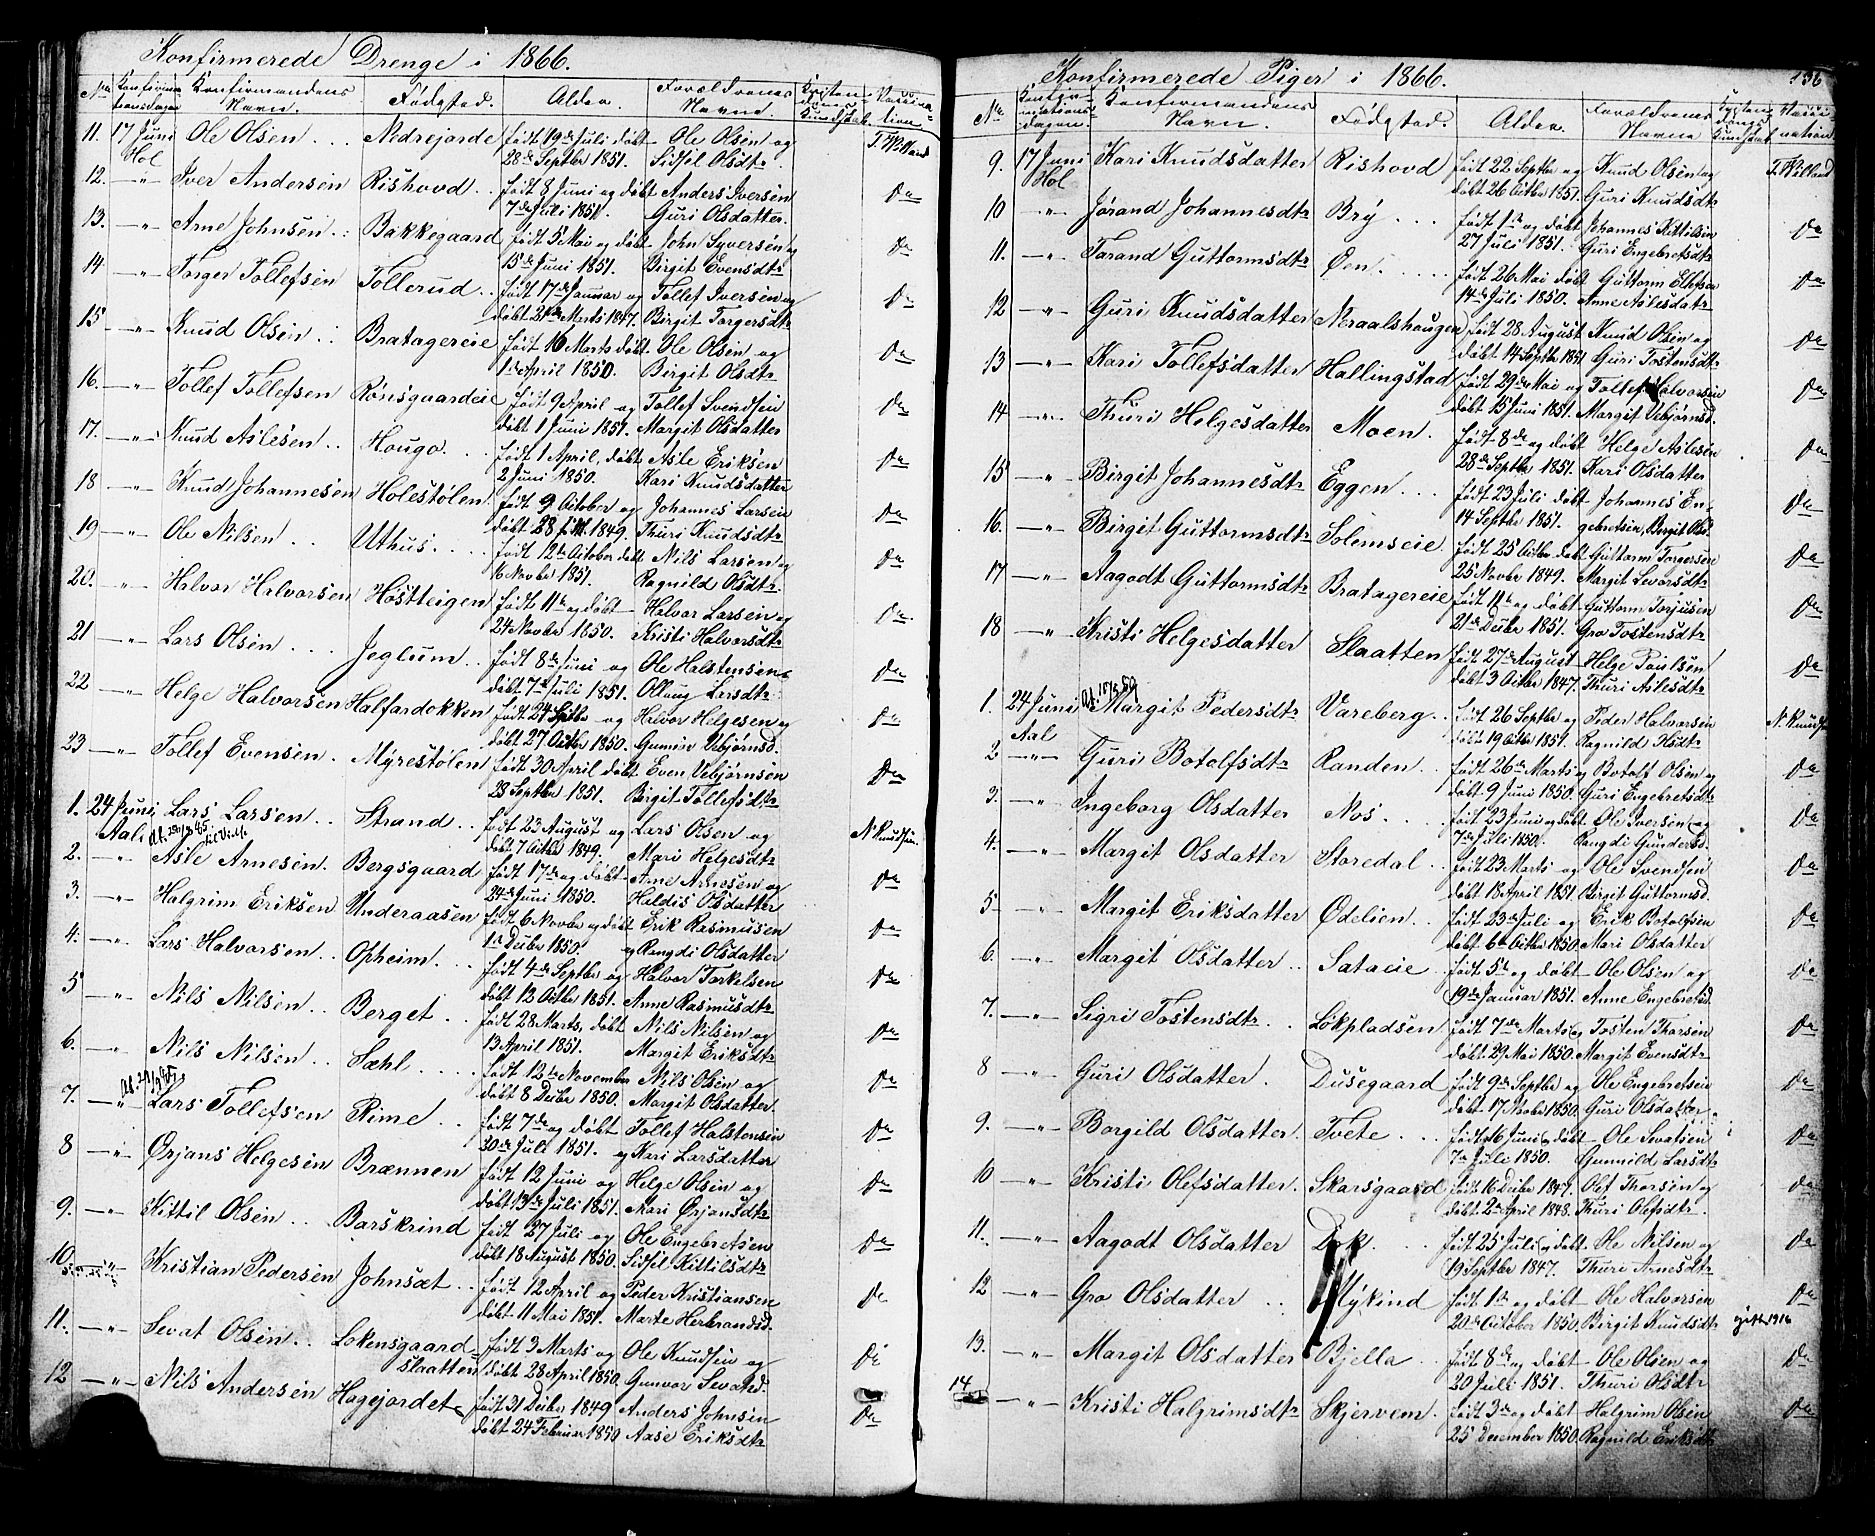 Konfirmerede Drenge i 1866.
No Konfirmationsdagen Konfirmandens Navn. Fødested. Alder. Forældrenes Navne. Kristendoms Kundskab Vaccination.
11. 17 Juni Ole Olsen Nedrejorde født 19de Juli døbt Ole Olsen og T. Willand
Hol 28de Septbr 1851. Sidsel Olsdtr
12. -"- Iver Andersen Rishovd født 8 Juni og døbt Anders Iversen Do
7de Juli 1851. Guri Olsdatter.
13. -"- Arne Johnsen Bakkegaard født 5 Mai og døbt John Syversen og Do
15de Juni 1851. Birgit Evensdtr
14 -"- Torger Tollefsen Tollerud født 17de Januar og Tollef Iversen og Do
døbt 21de Marts 1847. Birgit Torgersdtr
15 -"- Knud Olsen Bratagereie født 16 Marts døbt Ole Olsen og Do
1de April 1850. Birgit Olsdtr
16. -"- Tollef Tollefsen Rønsgaardeie født 9 April og Tollef Svendsen Do
døbt 1 Juni 1851. Margit Olsdatter
17. -"- Knud Aslesen Hougo født 1 April, døbt Asle Eriksen Do
2 Juni 1850. Kari Knudsdatter
18 -"- Knud Johannesen Holestølen født 9 October og Johannes Larsen Do
døbt 28 1849. Thuri Knudsdtr
19 -"- Ole Nilsen Uthus født 12te October døbt Nils Larsen og Do
16 Novbr 1851. Ragnild Olsdtr
20. -"- Halvor Halvorsen Høstteigen født 11te og døbt Halvor Larsen og Do
24 Novbr 1850. Kristi Halvorsdtr
21 -"- Lars Olsen Jeglum født 8de Juni og Ole Halstensen Do
døbt 7de Juli 1851. Ollaug Larsdtr
22 -"- Helge Halvorsen Halfardokken født 24 Septbr og Halvor Helgesen og Do
døbt 27 Octbr 1850. Gunniv Vebjørnsd.
23 -"- Tollef Evensen Myrestølen født 30 April døbt Even Vebjørnsen Do
28 Septbr 1851. Birgit Tollefsdtr
1. 24 Juni Lars Larsen Strand født 23 August og Lars Olsen og N. Knudsen
Aal døbt 7 Octbr 1849. Mari Helgesdtr
2. -"- Asle Arnesen Bergsgaard født 17de og døbt Arne Arnesen og Do
24de Juni 1850. Haldis Olsdatter
3. -"- Halgrim Eriksen Underaasen født 6 Novbr og døbt Erik Rasmusen Do
1de Decbr 1850. og Rangdi Olsdatter
4. -"- Lars Halvorsen Opheim født 4de Septbr og Halvor Torkelsen Do
døbt 12 Octbr 1851. Anne Rasmusdtr
5 -"- Nils Nilsen Berget født 28 Marts, døbt Nils Nilsen og Do
13 April 1851. Margit Eriksdtr
6. -"- Nils Nilsen Sæhl født 12te November Nils Olsen og Do
døbt 8 Decbr 1850. Margit Olsdatter.
7. -"- Lars Tollefsen Rime født 7de og døbt Tollef Halstensen Do
20de Juli 1851. og Kari Larsdatter
8 -"- Ørjans Helgesen Brænnen født 12 Juni og Helge Olsen og Do
døbt 13de Juli 1851. Mari Ørjansdtr
9. -"- Kittil Olsen Barskrind født 27 Juli og Ole Engebretsen Do
døbt 18 August 1850. Sidsel Kittilsdtr
10. -"- Kristian Pedersen Johnsæt født 12 April og Peder Kristiansen Do
døbt 11 Mai 1851. Marte Herbrandsd.
11. -"- Sevat Olsen Løkensgaard født 3 Marts og Ole Knudsen og Do
slaatten døbt 28 April 1850. Gunvor Sevatsd.
12 -"- Nils Andersen Hagejordet født 31 Decbr 1849 Anders Johnsen Do
døbt 24 Februar 1850 Aase Eriksdtr
Konfirmerede Piger i 1866. 136
No Konfirmationsdagen. Konfirmandens Navn. Fødested. Alder. Forældrenes Navne Kristendoms Kundskab Vaccination
9. 17 Juni Kari Knudsdatter Rishovd født 22 Septbr og Knud Olsen og T. Willand
Hol døbt 26 Octbr 1851. Guri Knudsdtr
10 -"- Jørand Johannesdtr Bry født 1de og døbt Johannes Kittilsen Do
27 Juli 1851. Guri Engebretsdtr
11. -"- Tarand Guttormsdtr Øen født 26 Mai døbt Guttorm Ellefsen Do
14de Juli 1850. Anne Aslesdatr
12 -"- Guri Knudsdatter Neraalshaugen født 28 August Knud Olsen og Do
døbt 14 Septbr 1851 Guri Tostensdtr
13 -"- Kari Tollefsdatter Hallingstad født 29de Mai og Tollef Halvorsen Do
døbt 15 Juni 1851. Margit Vebjørnsd.
14 -"- Thuri Helgesdatter Moen født 8de og døbt Helge Aslesen Do
28de Septbr 1851. Kari Olsdatter
15 -"- Birgit Johannesdtr Eggen født 23 Juli døbt Johannes En- Do
14 Septbr 1851. gebretsen, Birgit Olsd.
16. -"- Birgit Guttormsdtr Solemseie født 25 Octbr døbt Guttorm Torgersen Do
25 Novbr 1849. Margit Sevorsdtr
17 -"- Aagodt Guttormsdtr Bratagereie født 11te og døbt Guttorm Torjusen Do
21de Decbr 1851. Gro Tostensdtr
18 -"- Kristi Helgesdatter Slaatten født 27de August Helge Poulsen Do
døbt 3 Octbr 1847. Thuri Aslesdtr
1. 24 Juni Margit Pedersdtr Vareberg født 26 Septbr og Peder Halvorsen N. Knudsen
Aal døbt 19 Octbr 1851. Ragnild
2 -"- Guri Botolfsdtr Randen født 26de Marts og Botolf Olsen og Do
døbt 9 Juni 1850. Guri Engebretsdtr
3. -"- Ingeborg Olsdatter Nos født 23 Juni og døbt Ole Iversen og Do
7de Juli 1850. Rangdi Gundersd.
4. -"- Margit Olsdatter Storedal født 23 Marts og Ole Svendsen Do
døbt 18 April 1851. Birgit Guttormsd.
5 -"- Margit Eriksdatter Ødelien født 23de Juli og Erik Botolfsen Do
døbt 6te Octbr 1850. Mari Olsdatter
6. -"- Margit Olsdatter Sataeie født 5te og døbt Ole Olsen og Do
19de Januar 1851. Anne Engebretsd.
7. -"- Sigri Tostensdtr Løkpladsen født 7de Marts og Tosten Thorsen Do
døbt 29 Mai 1850. Margit Evensdtr
8 -"- Guri Olsdatter Dusegaard født 9de Septbr og Ole Engebretsen Do
døbt 17 Novbr 1850. Guri Olsdatter
9. -"- Borgild Olsdatter Tvete født 16 Juni og døbt Ole Sevatsen Do
7de Juli 1850. Gunnild Larsdtr
10 -"- Kristi Olefsdatter Skarsgaard født 16 Decbr 1847. Olef Thorsen og Do
døbt 2de April 1848. Thuri Olefsdtr
11. -"- Aagodt Olsdatter født 25 Juli og døbt Ole Nilsen og Do
19 Septbr 1847. Thuri Arnesdtr
12 -"- Gro Olsdatter Mykind født 1de og døbt Ole Halvorsen Do
20de October 1850. Birgit Knudsdtr gift 1916
13. -"- Margit Olsdatter Bjella født 8de og døbt Ole Olsen og Do
20 Juli 1851. Thuri Olsdtr
14 -"- Kristi Halgrimsdtr Skjervem født 3de og døbt Halgrim Olsen Do
25 December 1850. Ragnild Eriksdtr